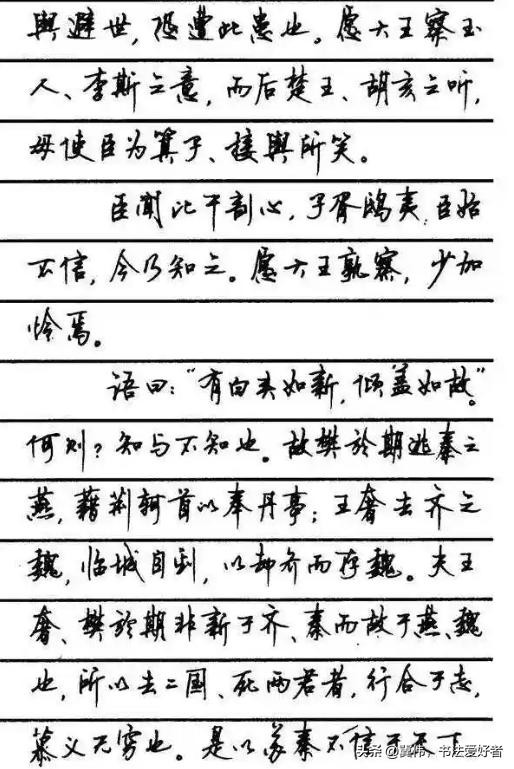 與避世，恐遭此患也。愿大王察玉
人、李斯之意，而后楚王、胡亥之听，
毋使臣为箕子、接輿所笑。
臣闻比干剖心，子胥鸱夷，臣始
不信，今乃知之。愿大王孰察，少加
怜焉。
语曰："有白头如新，倾盖如故"。
何则？知与不知也。故樊於期逃秦之
燕，藉荆轲首以奉丹事；王奢去齐之
魏，临城自刭，以却齐而存魏。夫王
奢、樊於期非新于齐、秦而故于燕、魏
也，所以去二国、死两君者，行合于志，
慕义无穷也。是以苏秦不信于天下
头条 @冀伟，书法爱好者